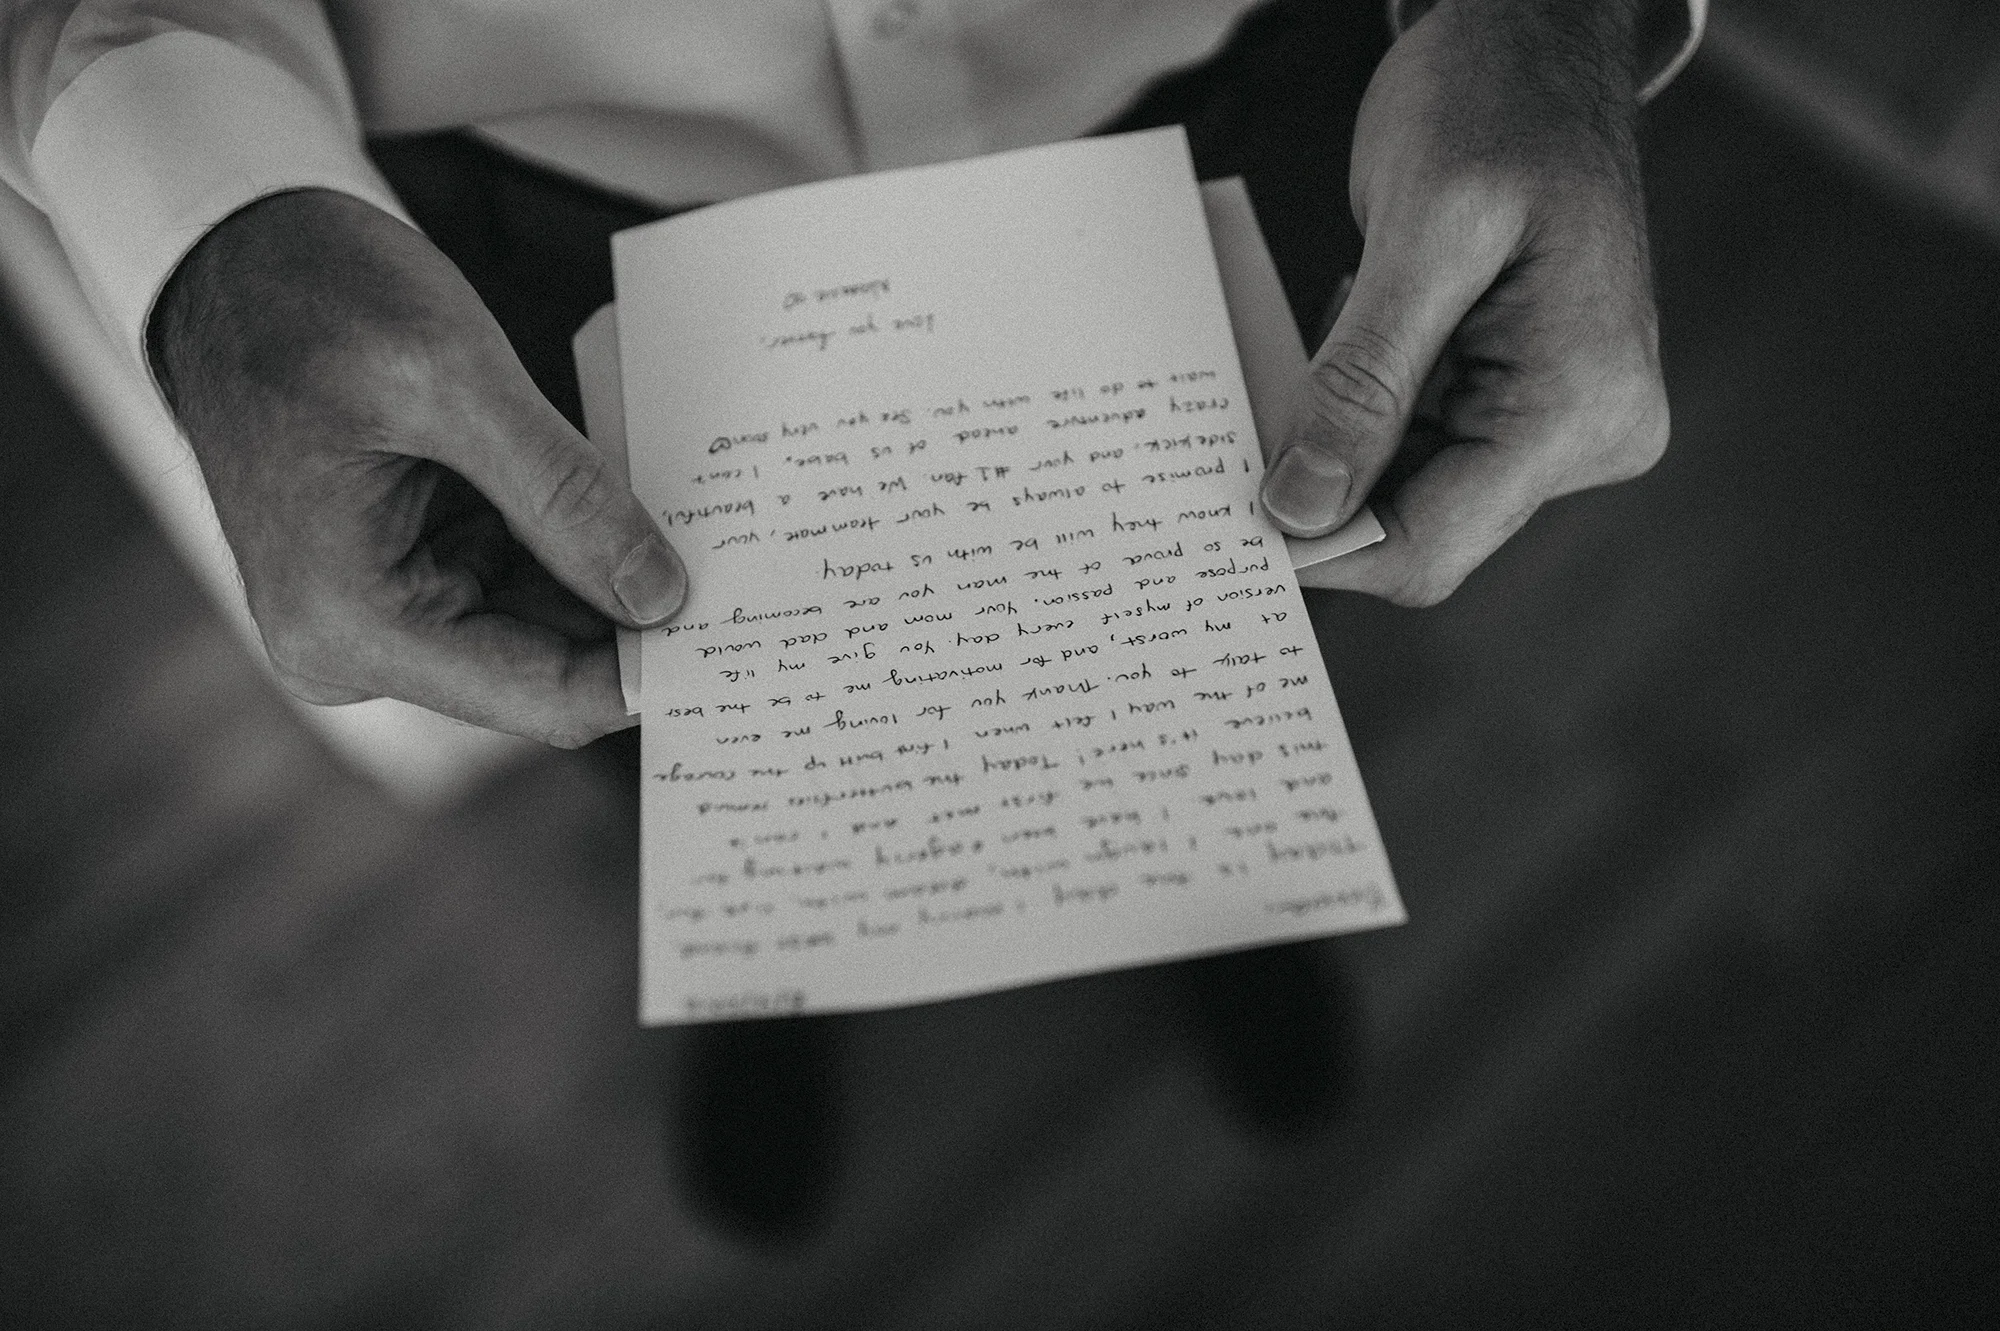 Today is the day I marry my best friend,
the one I laugh with, dream with, live for,
and love. I have been eagerly waiting for
this day since we first met and I can't
believe it's here! Today the butterflies remind
me of the way I felt when I first built up the courage
to talk to you. Thank you for loving me even
at my worst, and for motivating me to be the best
version of myself every day. You give my life
purpose and passion. Your mom and dad would
be so proud of the man you are becoming and
I know they will be with us today.
I promise to always be your teammate, your
sidekick, and your #1 fan. We have a beautiful,
crazy adventure ahead of us babe. I can't
wait to do life with you. See you very soon♡
Love you